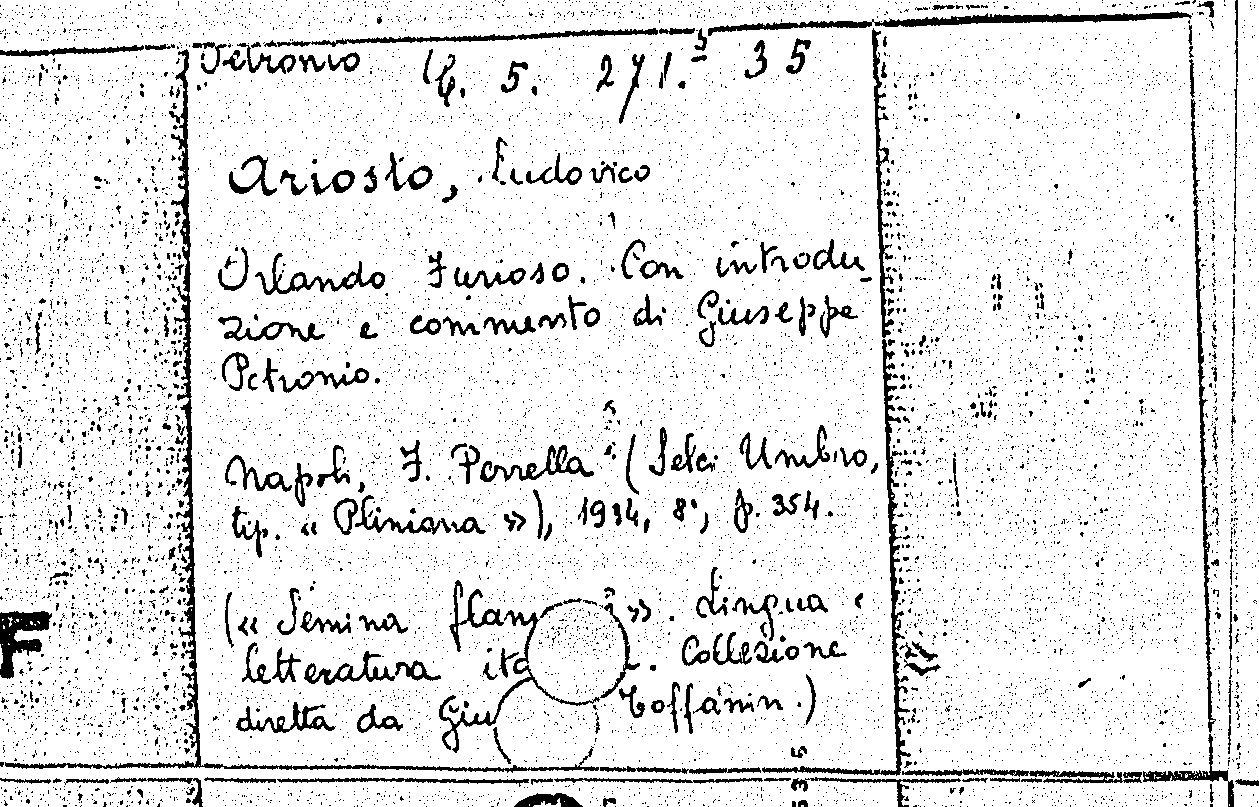 Petronio 6. 5. 271. 35
Ariosto, Ludovico
Orlando Furioso. Con introdu-
zione e commento di Giuseppe
Petronio.
Napoli, F. Perrella (Selci Umbro,
tip. « Pliniana »), 1934, 8°, p. 354.
(« Semina flam i ». Lingua e
letteratura ita . Collezione
diretta da Giu Toffanin.)
F